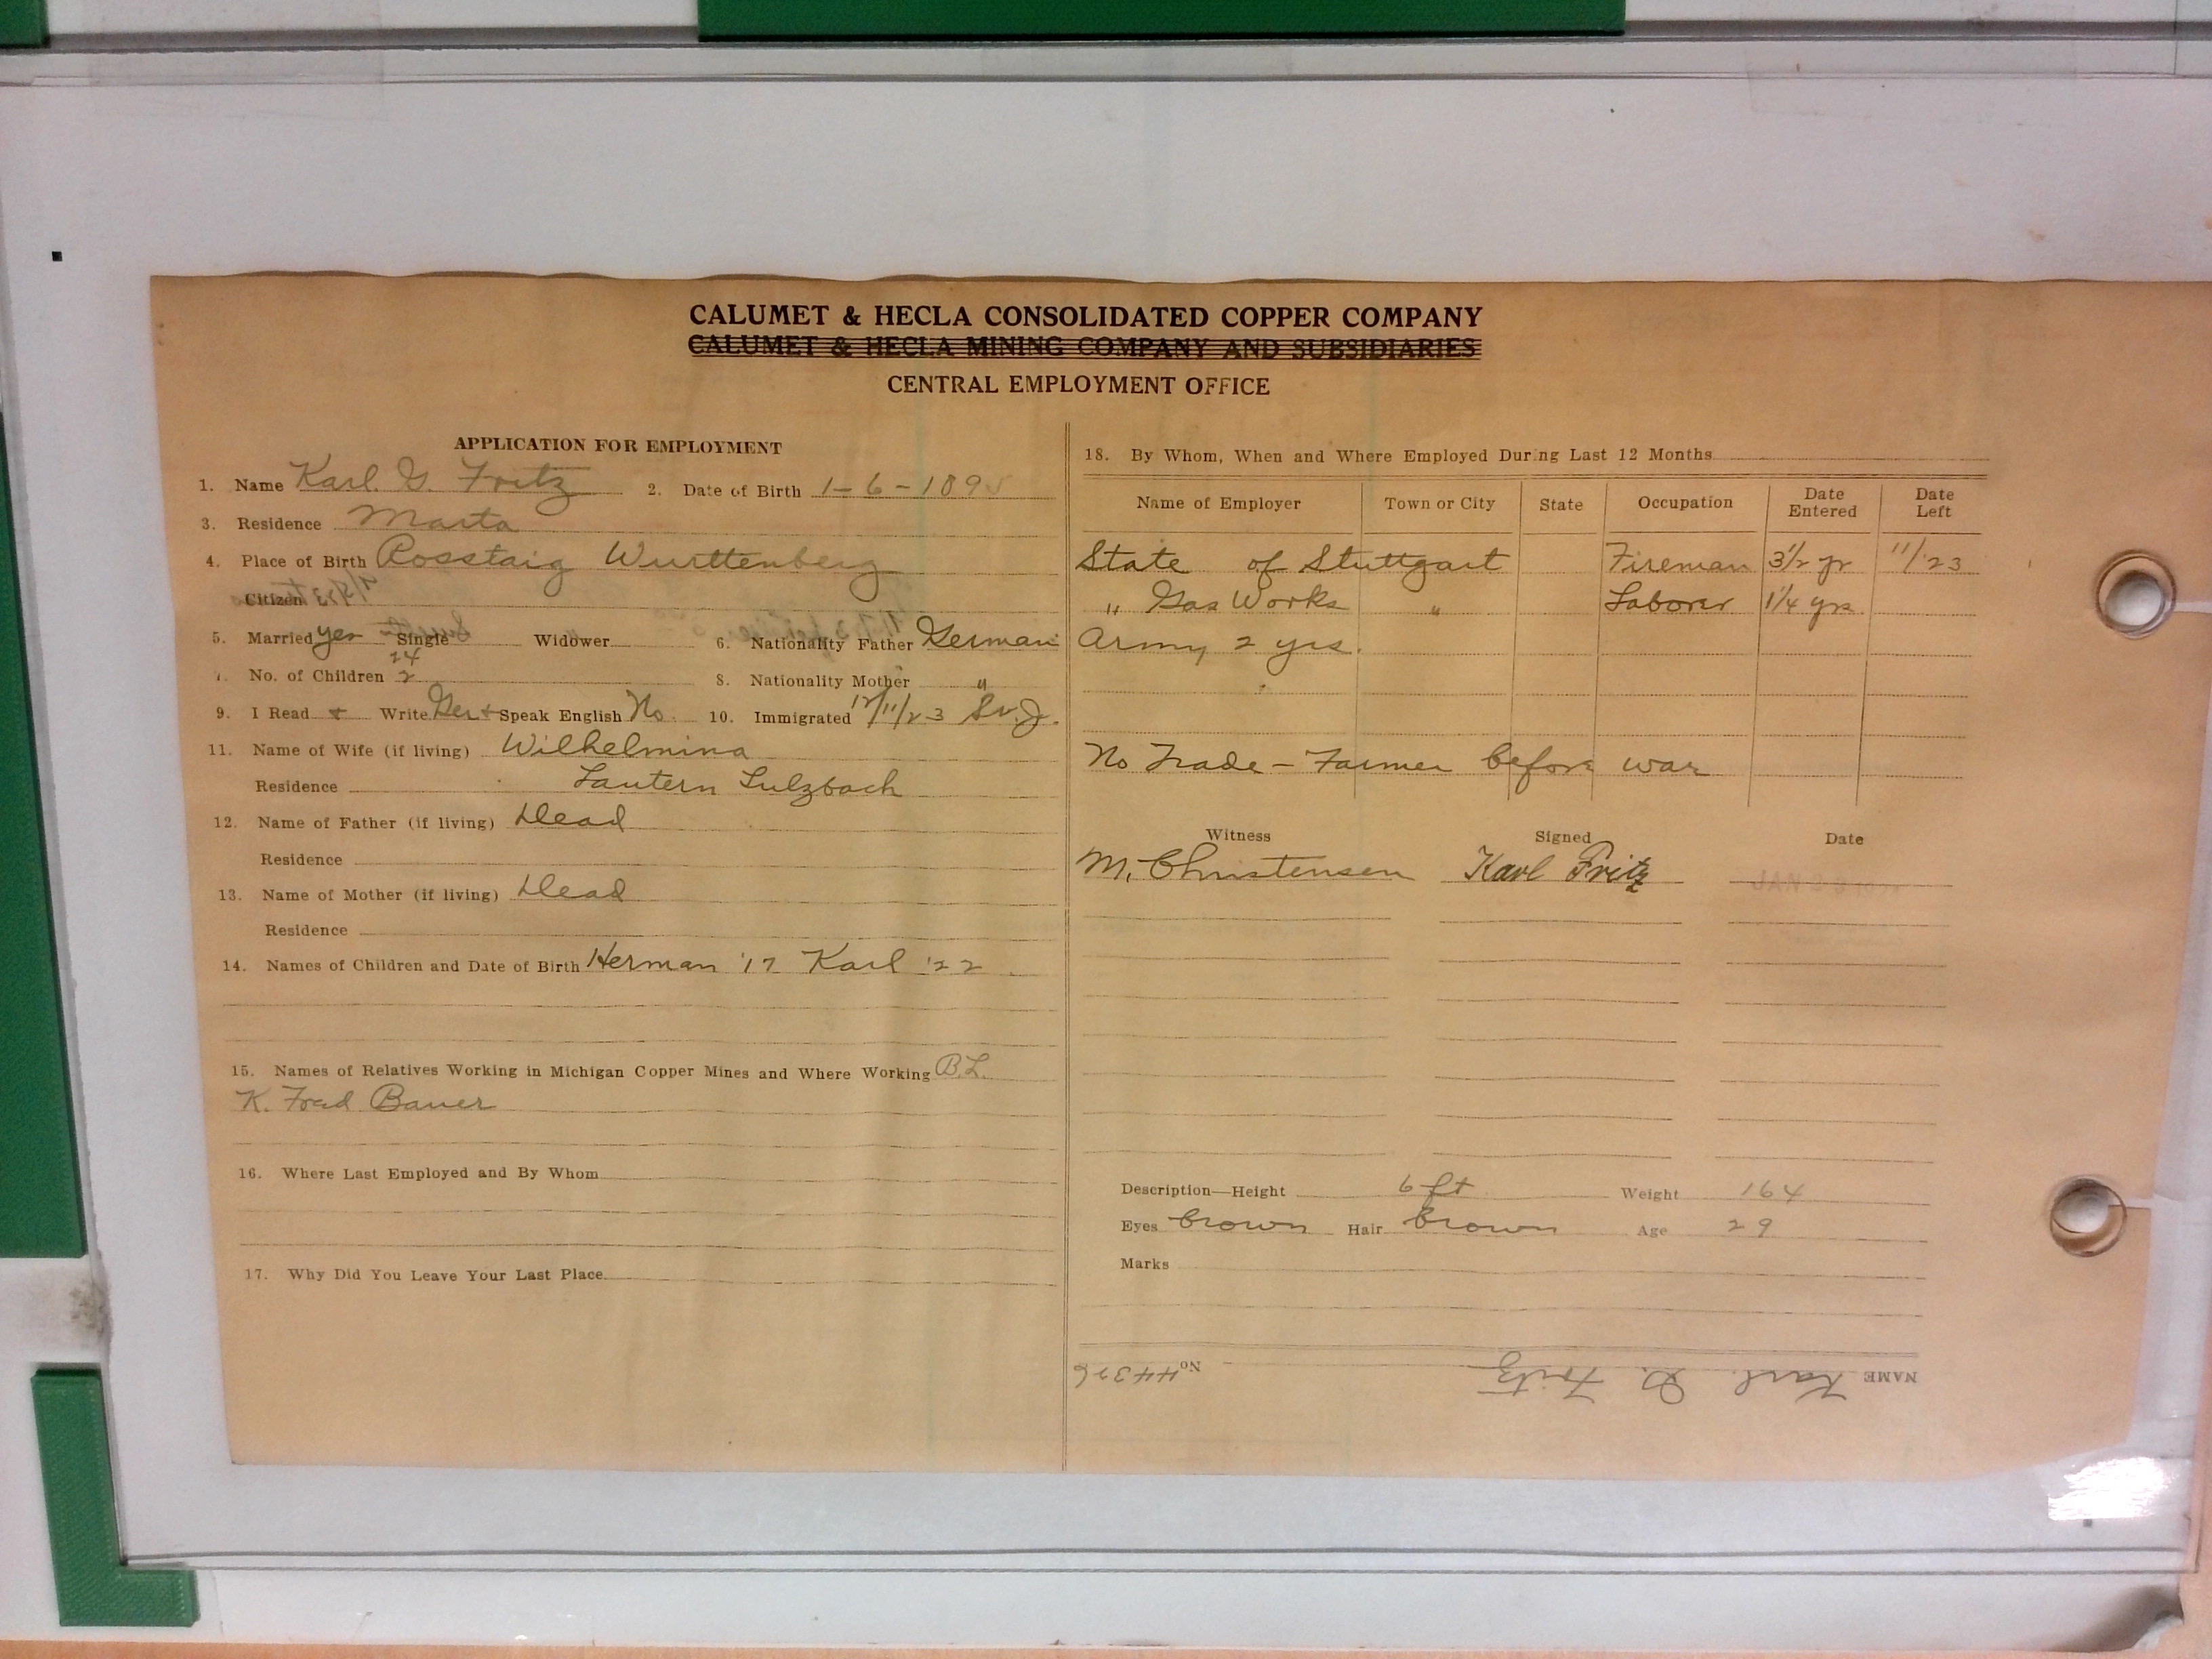 CALUMET & HECLA CONSOLIDATED COPPER COMPANY
CALUMET & HECLA MINING COMPANY AND SUBSIDIARIES
CENTRAL EMPLOYMENT OFFICE
APPLICATION FOR EMPLOYMENT
1. Name Karl. G. Fritz 2. Date of Birth 1-6-1895
3. Residence Marta
4. Place of Birth Rosstaig Wurttenberg
Citizen
5. Married yes Single Widower 6. Nationality Father German
24
7. No. of Children 2 8. Nationality Mother "
9. I Read + Write Ger + Speak English No 10. Immigrated 12/11/23
11. Name of Wife (if living) Wilhelmina
Residence Lautern Sulzbach
12. Name of Father (if living) Dead
Residence
13. Name of Mother (if living) Dead
Residence
14. Names of Children and Date of Birth Herman '17 Karl '22
15. Names of Relatives Working in Michigan Copper Mines and Where Working B.L.
K. Fred Bauer
16. Where Last Employed and By Whom
17. Why Did You Leave Your Last Place
18. By Whom, When and Where Employed During Last 12 Months
Name of Employer Town or City State Occupation Date Entered Date Left
State of Stuttgart Fireman 3½ yr 11/23
" Gas Works " Laborer 1¼ yrs.
Army 2 yrs.
No Trade - Farmer before war
Witness Signed Date
M. Christensen Karl Fritz
Description—Height 6 ft Weight 164
Eyes brown Hair brown Age 29
Marks
NAME Karl G. Fritz No 44326